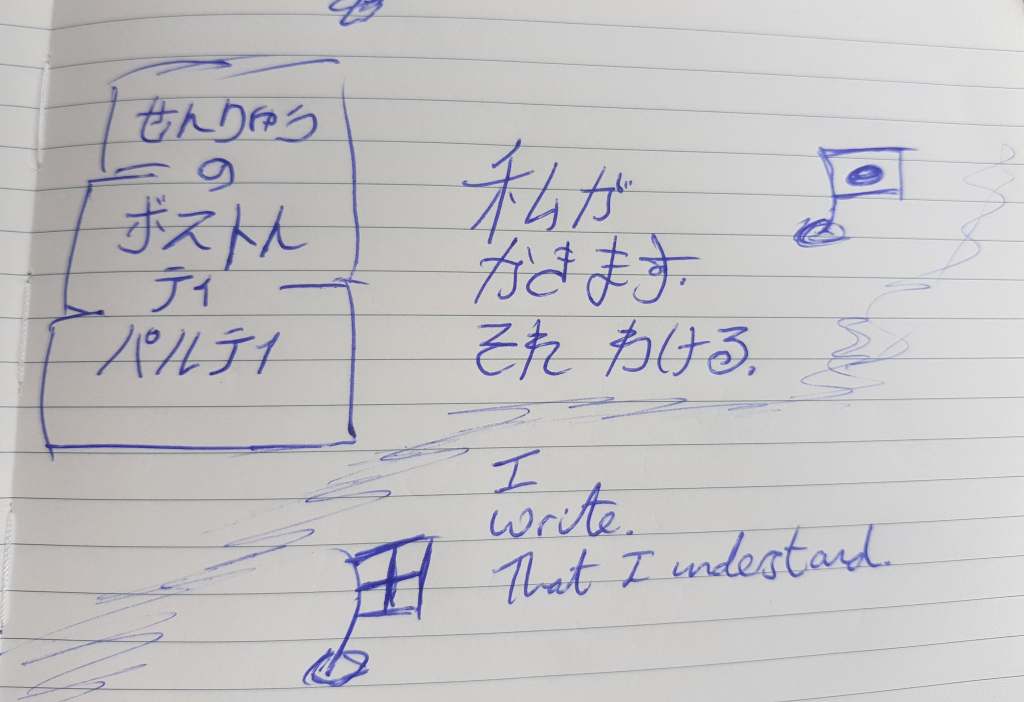 せんりゅう
の
ボストん
ティ
パルティ
私が
かきます.
それ わける.
I
write.
That I understand.